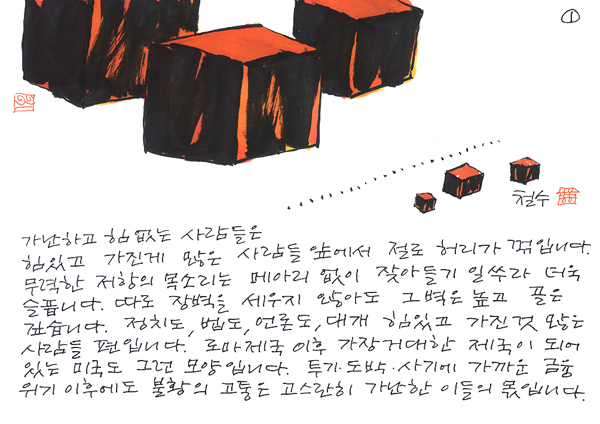 ①
철수
가난하고 힘 없는 사람들은
힘있고 가진게 많은 사람들 앞에서 절로 허리가 꺾입니다.
무력한 저항의 목소리는 메아리 없이 잦아들기 일쑤라 더욱
슬픕니다. 따로 장벽을 세우지 않아도 그 벽은 높고 골은
깊습니다. 정치도, 법도, 언론도, 대개 힘있고 가진것 많은
사람들 편입니다. 로마제국 이후 가장 거대한 제국이 되어
있는 미국도 그런 모양입니다. 투기·도박·사기에 가까운 금융
위기 이후에도 불황의 고통은 고스란히 가난한 이들의 몫입니다.